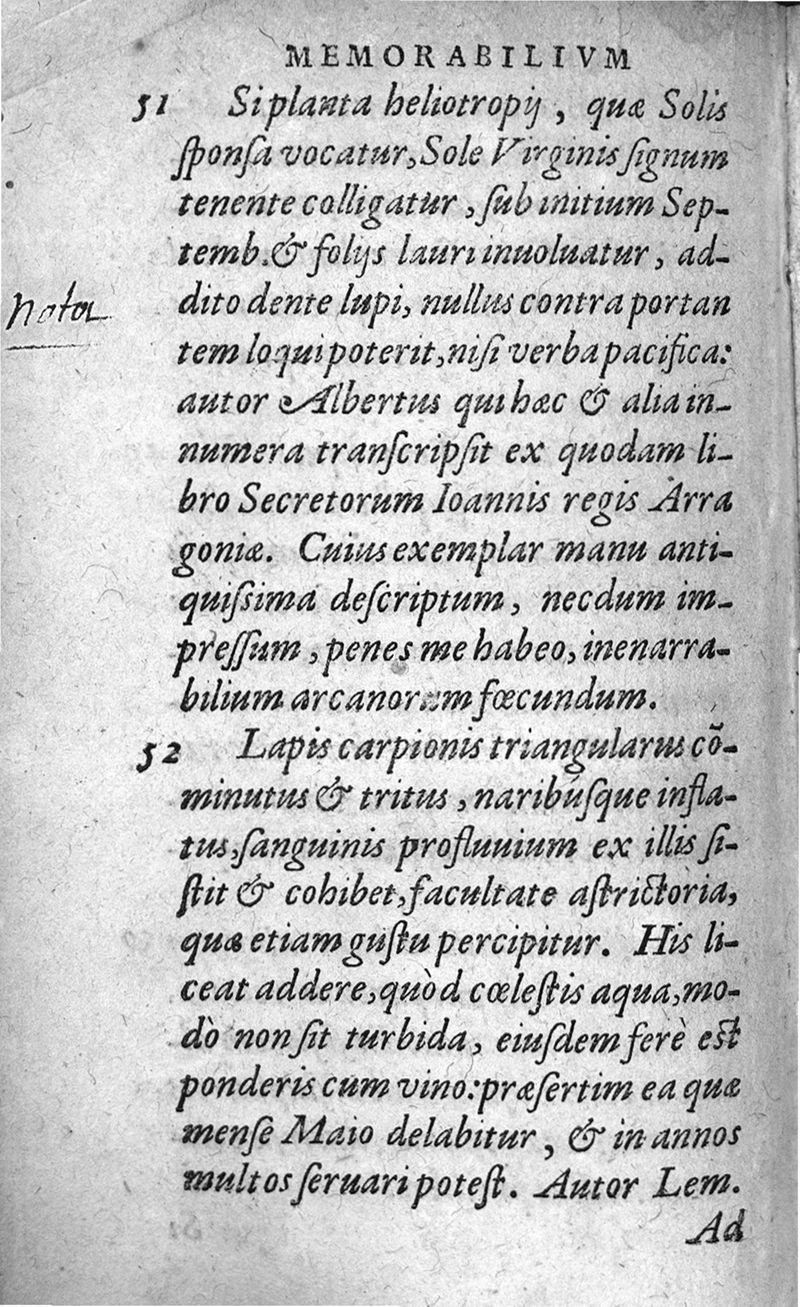 MEMORABILIVM
51 Si planta heliotropij, quæ Solis
ſponſa vocatur, Sole Virginis ſignum
tenente colligatur, ſub initium Sep-
temb. & folijs lauri inuoluatur, ad-
dito dente lupi, nullus contra portan
tem loqui poterit, niſi verba pacifica:
autor Albertus qui hæc & alia in-
numera tranſcripſit ex quodam li-
bro Secretorum Ioannis regis Arra
goniæ. Cuius exemplar manu anti-
quiſsima deſcriptum, necdum im-
preſſum, penes me habeo, inenarra-
bilium arcanorum fœcundum.
52 Lapis carpionis triangularus cõ-
minutus & tritus, naribúſque infla-
tus, ſanguinis profluuium ex illis ſi-
ſtit & cohibet, facultate aſtrictoria,
quæ etiam guſtu percipitur. His li-
ceat addere, quòd cœleſtis aqua, mo-
dò non ſit turbida, eiuſdem ferè eſt
ponderis cum vino: præſertim ea quæ
menſe Maio delabitur, & in annos
multos ſeruari poteſt. Autor Lem.
Ad
nota